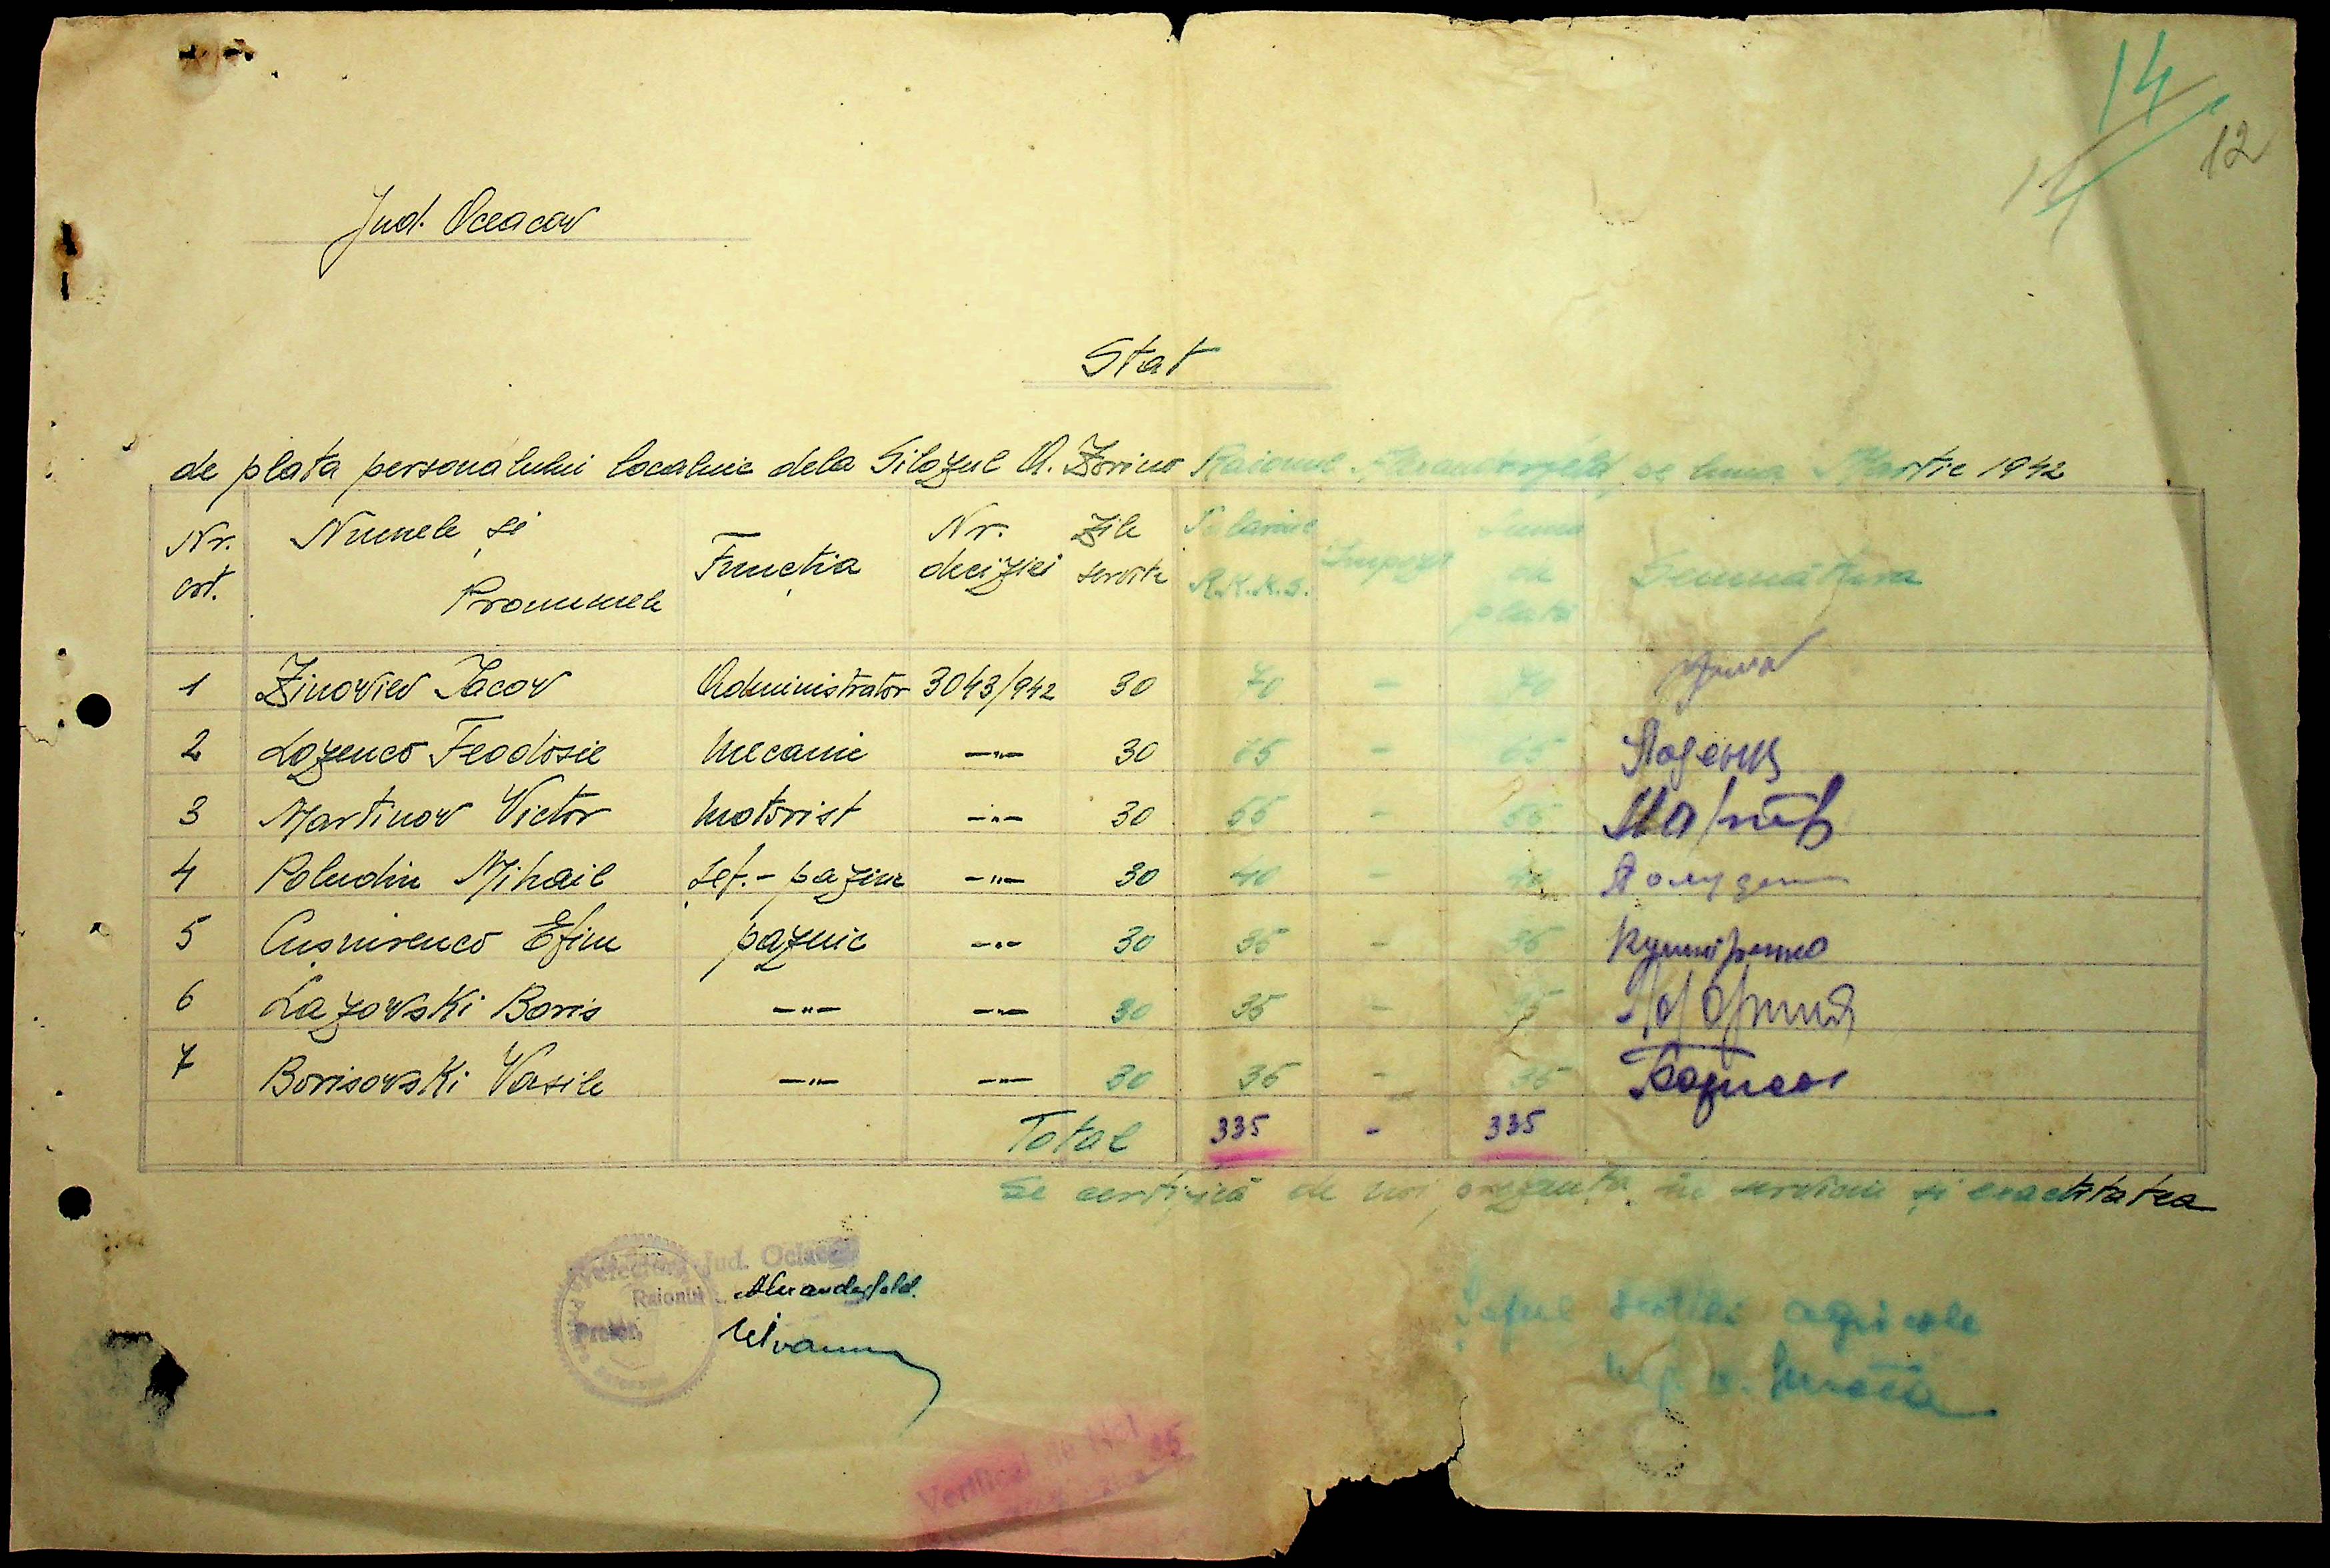 14
14
12
Jud. Oceacov
Stat
de plata personalului localnic dela Silozul A. Zorino Raionul Alexanderfeld pe luna Martie 1942
Nr. crt. Numele și Pronumele Funcția Nr. deciziei Zile servite Salariul R.K.K.S. Impozit Suma de plată Semnătura
1 Zinoviev Iacov Administrator 3043/942 30 70 - 70
2 Lozenco Feodosie Mecanic —"— 30 65 - 65 Лозенко
3 Martinov Victor Motorist —"— 30 55 - 55
4 Poludin Mihail șef.- paznic —"— 30 40 - 40 Полудин
5 Cușnirenco Efim paznic —"— 30 35 - 35 Кушніренко
6 Lazovski Boris —"— —"— 30 35 - 35
7 Borisovski Vasile —"— —"— 30 35 - 35
Total 335 - 335
Se certifică de noi prezența în serviciu și exactitatea
Prefectura Jud. Oceacov
Raionul Alexanderfeld.
Pretor,
Șeful secției agricole
Verificat de NOI